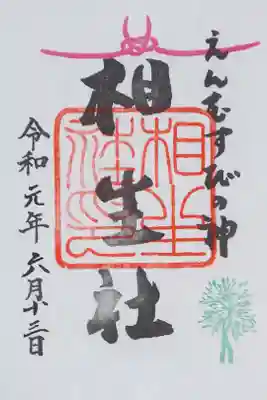 えんむすびの神
相生社
相生社印
令和元年六月十三日